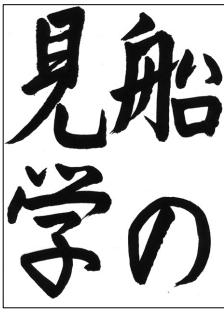 船の
見学